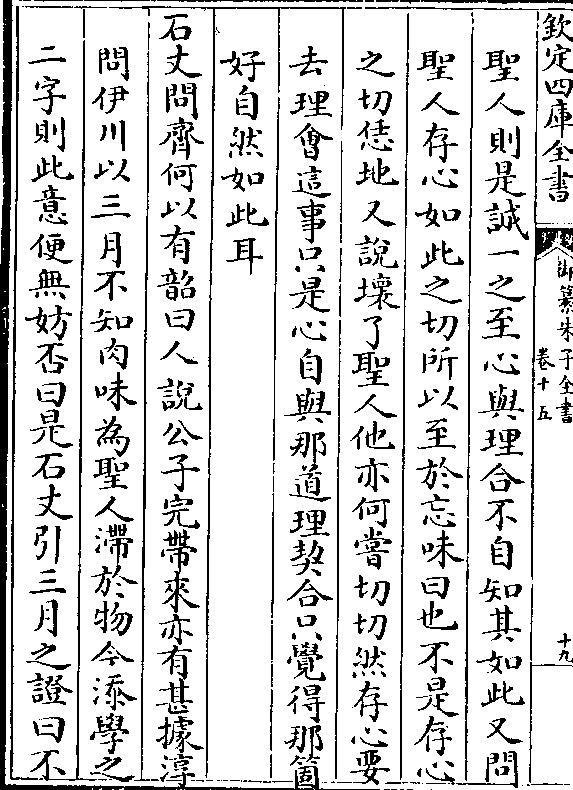 欽定四庫全書
御纂朱子全書
卷十五
十九
聖人則是誠一之至心與理合不自知其如此又問
聖人存心如此之切所以至於忘味曰也不是存心
之切恁地又說壞了聖人他亦何嘗切切然存心要
去理會這事只是心自與那道理契合只覺得那箇
好自然如此耳
石丈問齊何以有韶曰人說公子完帶來亦有甚據淳
問伊川以三月不知肉味為聖人滯於物今添學之
二字則此意便無妨否曰是石丈引三月之證曰不